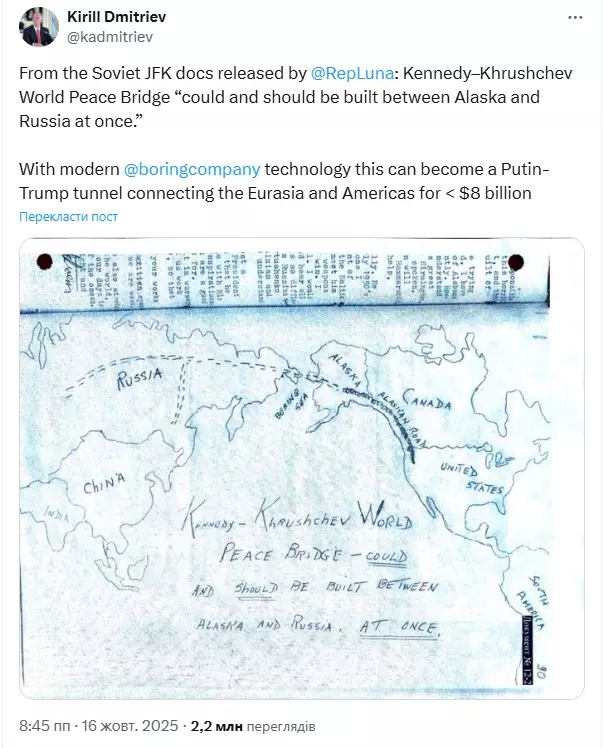 Kirill Dmitriev
@kadmitriev
From the Soviet JFK docs released by @RepLuna: Kennedy–Khrushchev
World Peace Bridge “could and should be built between Alaska and
Russia at once.”
With modern @boringcompany technology this can become a Putin-
Trump tunnel connecting the Eurasia and Americas for < $8 billion
Перекласти пост
RUSSIA
ALASKA
BERING
SEA
ALASKAN ROAD
CANADA
UNITED
STATES
CHINA
INDIA
KENNEDY – KHRUSHCHEV WORLD
PEACE BRIDGE – COULD
AND SHOULD BE BUILT BETWEEN
ALASKA AND RUSSIA. AT ONCE.
SOUTH
AMERICA
Документ № 12-2
90
8:45 пп · 16 жовт. 2025 · 2,2 млн переглядів